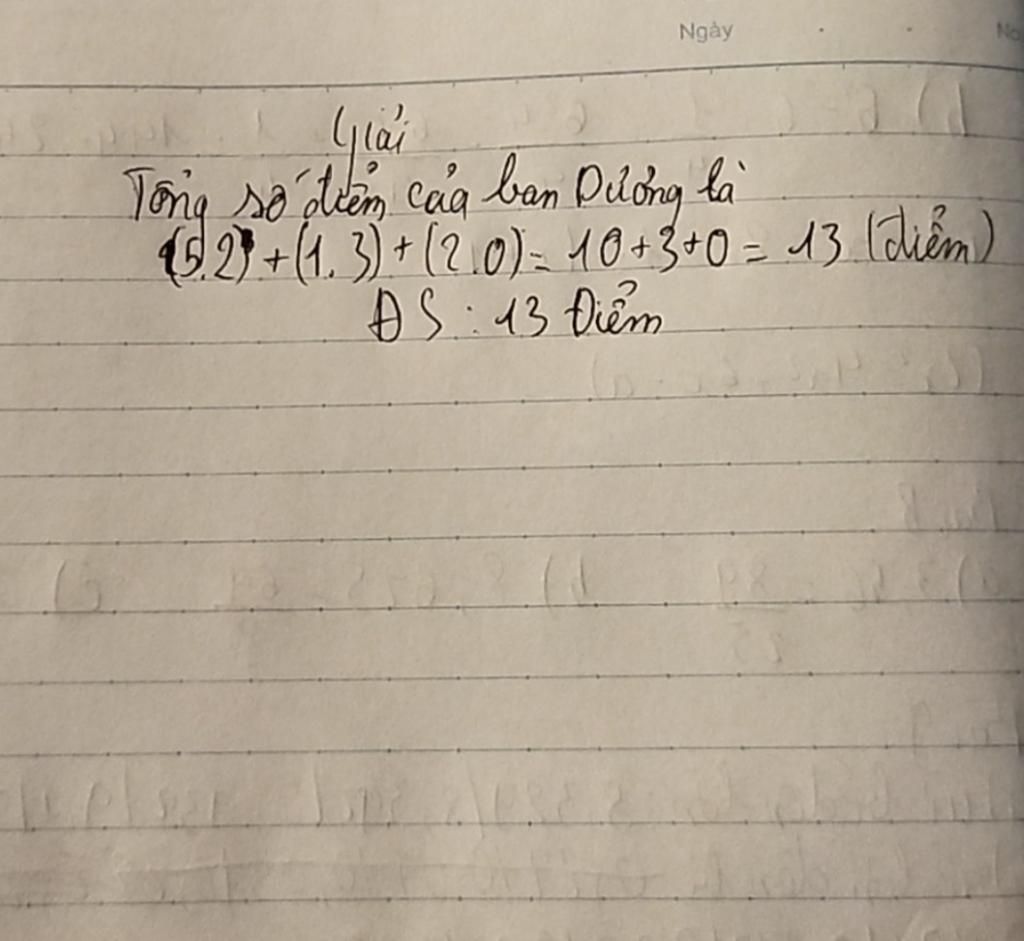 Ngày
No
Giải
Tổng số điểm của bạn Dương là
(5.2) + (1.3) + (2.0) = 10+3+0 = 13 (điểm)
ĐS : 13 Điểm